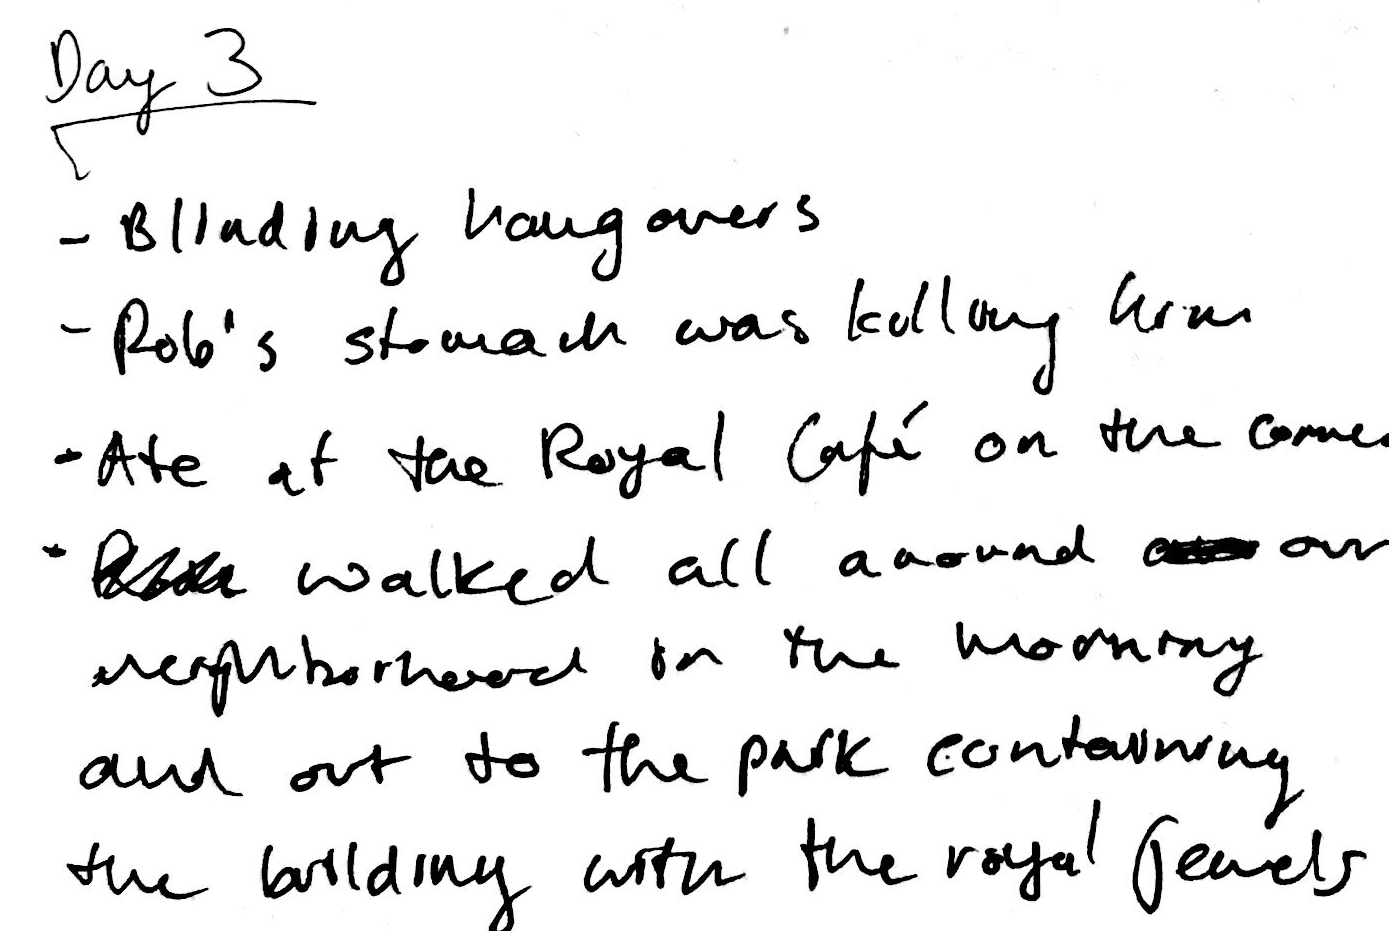 Day 3
- Blinding hangovers
- Rob's stomach was killing him
- Ate at the Royal Café on the corner
- walked all around our
neighborhood in the morning
and out to the park containing
the building with the royal jewels